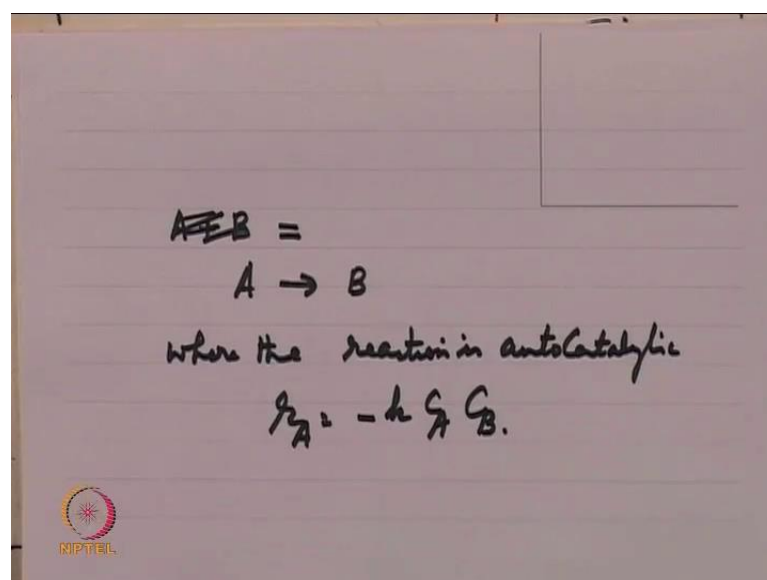 A ⇌ B =
A → B
where the reaction is autoCatalytic
r_A = - k C_A C_B.
NPTEL